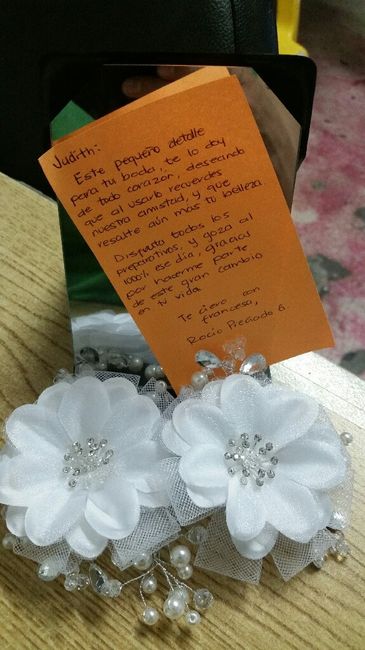 Judith:
Este pequeño detalle
para tu boda, te lo doy
de todo corazón, deseando
que al usarlo recuerdes
nuestra amistad, y que
resalte aún más tu belleza
Disfruta todos los
preparativos, y goza al
1000% ese día, gracias
por hacerme parte
de este gran cambio
en tu vida
Te quiero con
Rocío Preciado